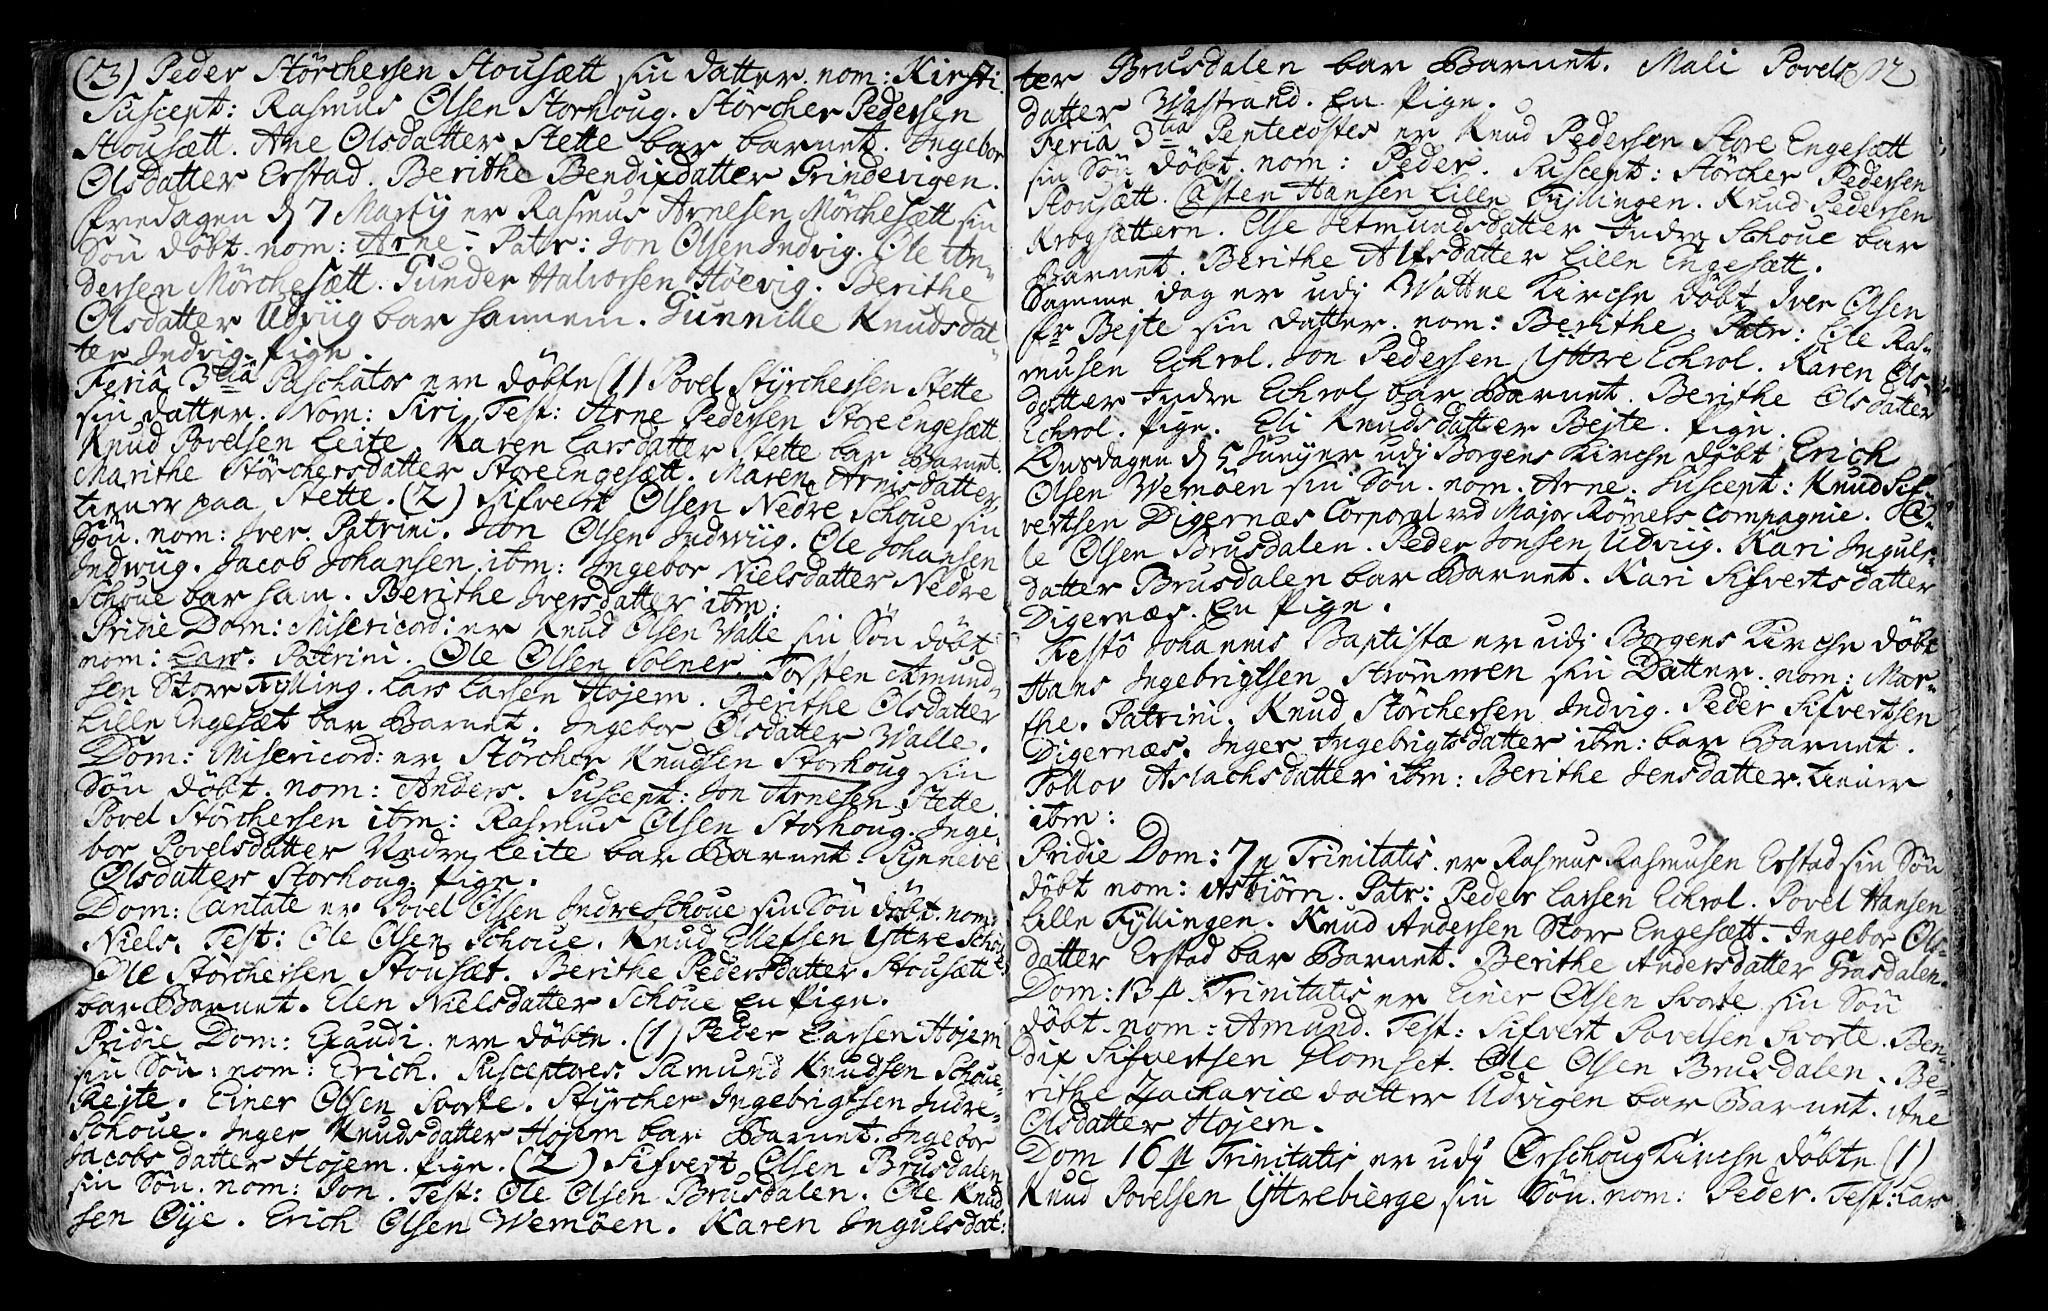 (3) Peder Störchersen Stousætt sin datter. nom: Kirsti.
Suscept: Rasmus Olsen Storhoug. Störcher Pedersen
Stousætt. Ane Olsdatter Stette bar barnet. Ingebor
Olsdatter Erstad. Berithe Bendixdatter Grindevigen.
Fredagen d 7 Martij er Rasmus Arnesen Mörchesætt sin
Sön döbt. nom: Arne. Patr: Jon Olsen Indvig. Ole An-
dersen Mörchesætt. Gunder Halvorsen Höevig. Berithe
Olsdatter Udviig bar hannem. Gunnille Knudsdat-
ter Indvig. pige.
Feria 3tia Paschatos ere döbte (1) Povel Styrchersen Stette
sin datter. Nom: Siri. Test: Arne Pedersen Store Engesætt
Knud Povelsen Leite. Karen Larsdatter Stette bar Barnet.
Marithe Störchersdatter Store Engesætt. Maren Arnesdatter
tiener paa Stette. (2) Sifvert Olsen Nedre Schoue sin
Sön. nom: Iver. Patrini. Jon Olsen Indwiig. Ole Johansen
Indwiig. Jacob Johansen ibm: Ingebor Nielsdatter Nedre
Schoue bar ham. Berithe Iversdatter ibm:
Pridie Dom: Misericord: er Knud Olsen Walle sin Sön döbt
nom: Lars. Patrini. Ole Olsen Solner. Torsten Amund-
sen Store Tylling. Lars Larsen Hojem. Berithe Olsdatter
Lille Engesæt bar Barnet. Ingebor Olsdatter Walle.
Dom: Misericord: er Störcher Knudsen Storhoug sin
Sön döbt. nom: Anders. Suscept: Jon Arnesen Stette.
Povel Störchersen ibm: Rasmus Olsen Storhoug. Inge-
bor Povelsdatter Nedre Leite bar Barnet. Synneve
Olsdatter Storhoug. pige.
Dom: Cantate er Povel Olsen Indre Schoue sin Sön döbt. nom:
Niels. Test: Ole Olsen Schoue. Knud Ellefsen Yttre Schoue
Ole Störchersen Stousæt. Berithe Pedersdatter Stousætt
bar Barnet. Elen Nielsdatter Schoue En Pige.
Pridie Dom: Exaudi. ere döbte. (1) Peder Larsen Hojem
sin Sön: nom: Erich. Susceptores. Samund Knudsen Schoue-
Rejte. Einer Olsen Svorte. Styrcher Ingebrigtsen Indre-
Schoue. Inger Knudsdatter Hojem bar Barnet. Ingebor
Jacobs datter Hojem. pige. (2) Sifvert Olsen Brusdalen
sin Sön. nom: Jon. Test: Ole Olsen Brusdalen. Ole Knud
sen Öije. Erich Olsen Wemöen. Karen Ingulsdat:
ter Brusdalen bar Barnet. Mali Povels
datter Wastrand. En pige.
Feria 3tia Pentecostes er Knud Pedersen Store Engesætt
sin Sön döbt. nom: Peder. Suscept: Störcher Pedersen
Stousætt. Casten Hansen Lille Tyllingen. Knud Pedersen
Krogsættern. Else Jetmundsdatter Indre Schoue bar
Barnet. Berithe Alfsdatter Lille Engesætt.
Samme dag er udj Wattne Kirche döbt Iver Olsen
Bejte sin datter. nom: Berithe. Patr: Ole Ras-
musen Echrol. Jon Pedersen Yttre Echrol. Karen Ols-
datter Indre Echrol bar Barnet. Berithe Olsdatter
Echrol. pige. Eli Knudsdatter Bejte. pige.
Onsdagen d 5 Junij er udj Borgens Kirche döbt Erich
Olsen Wemöen sin Sön. nom. Arne. Suscept: Knud Sif-
vertsen Digernæs Corporal ved Major Römers Compagnie. O-
le Olsen Brusdalen. Peder Jonsen Udvig. Kari Inguls-
datter Brusdalen bar Barnet. Kari Sifverts datter
Digernæs. En Pige.
Festo Johannis Baptistæ er udj Borgens Kirche döbt
Hans Ingebrigtsen Strömmen sin Datter. nom: Mar-
the. Patrini. Knud Störchersen Indvig. Peder Sifvertsen
Digernæs. Inger Ingebrigtsdatter ibm: bar Barnet.
Tollov Aslachsdatter ibm: Berithe Jensdatter. tiener
ibm:
Pridie Dom: 7 p Trinitatis. er Rasmus Rasmusen Erstad sin Sön
döbt nom: Asbiörn. Patr: Peder Larsen Echrol. Povel Hansen
Lille Tyllingen. Knud Andersen Store Engesætt. Ingebor Ols-
datter Erstad bar Barnet. Berithe Andersdatter Grasdalen.
Dom: 13 p. Trinitatis er Einer Olsen Svorte sin Sön
döbt. nom: Amund. Test: Sifvert Povelsen Svorte. Ben-
dix Sifvertsen Blomset. Ole Olsen Brusdalen. Be-
rithe Zachariæ datter Udvigen bar Barnet. Ane
Olsdatter Hojem.
Dom 16 p Trinitatis er udj Örschoug Kirche döbte (1)
Knud Povelsen Yttrebierge sin Sön. nom: Peder. Test: Lars